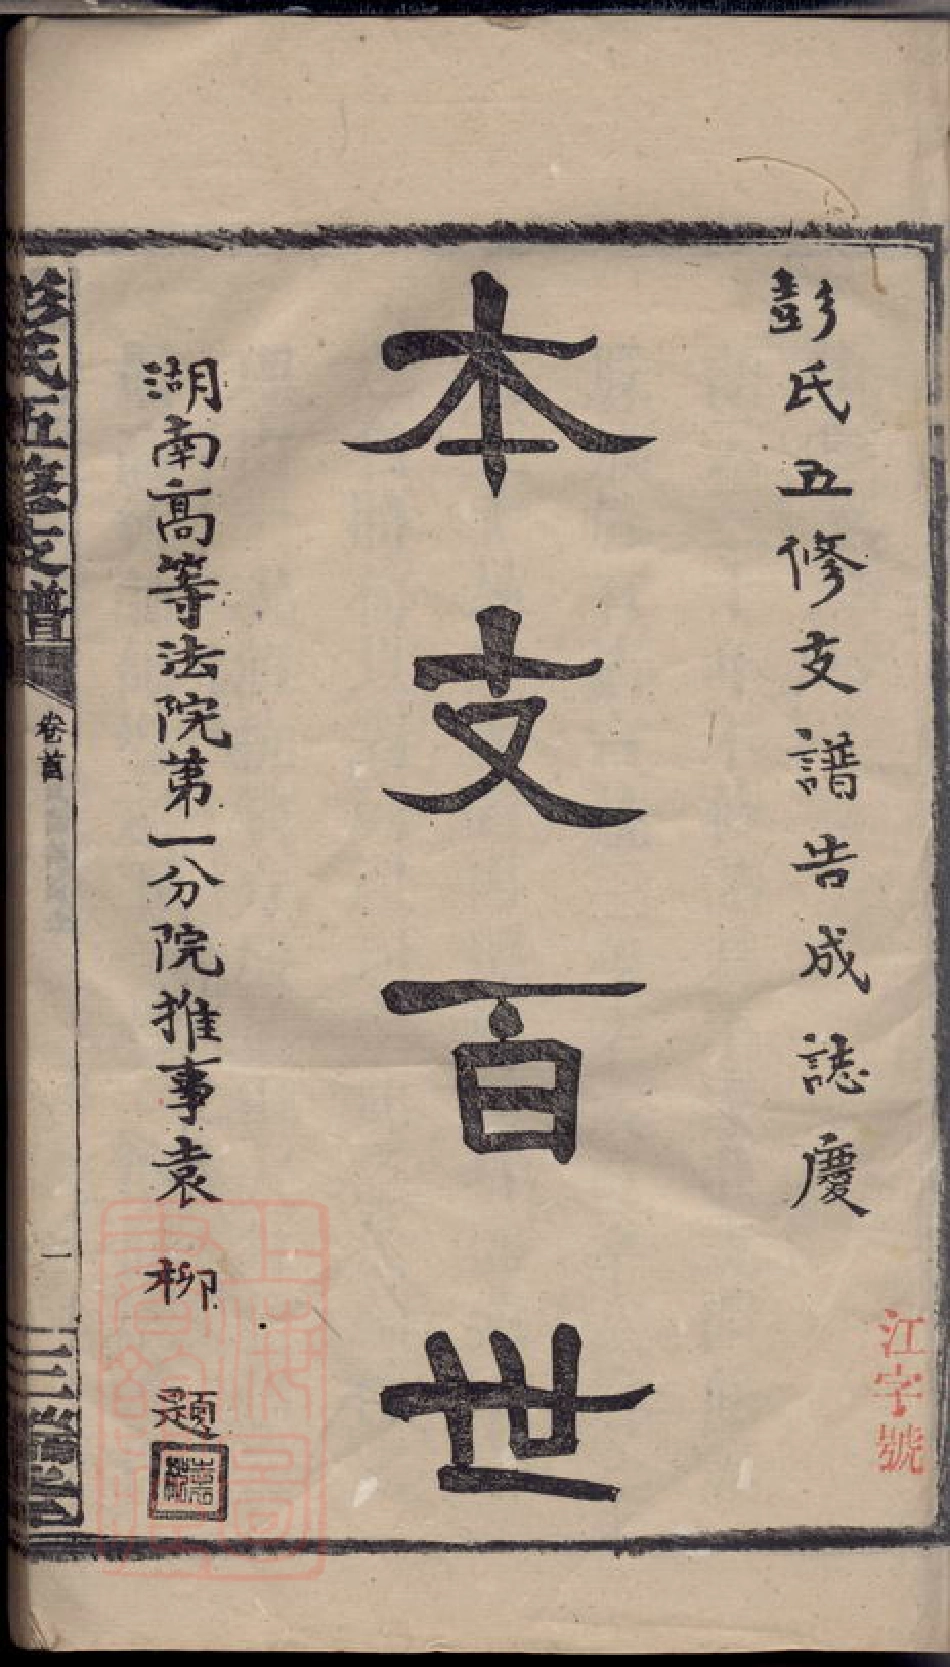 彭氏五修支譜告成誌慶
江字號
本支百世
湖南高等法院第一分院推事袁 柳 題
上海圖書館藏
彭氏五修支譜
卷首
一
三瑞堂